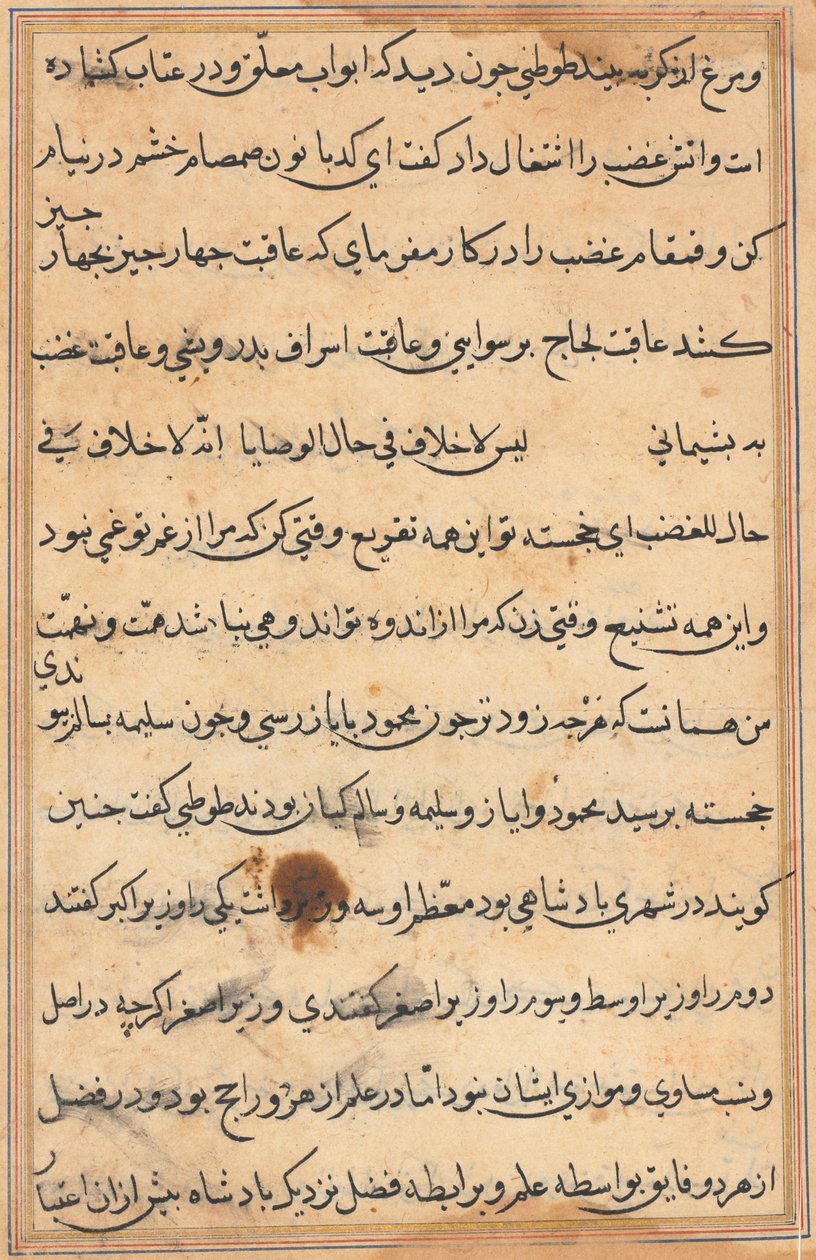 و مرغ از کربه بیند طوطی جون دید که ابواب معلّق و در عتاب کشاده
است واتش غضب را اشتغال داد کفت ای کدبانون صمصام خشم در نیام
کن و قمقام غضب را در کار مفرمای که عاقبت جهار جیز بجهار جیز
کشد عاقبت لجاج برسوایی و عاقبت اسراف بدرویشی و عاقبت غضب
به بشیمانی لیس لاخلاف فی حال الوصایا انّه لاخلاف فی
حال للغضب ای خجسته تو این همه تقریع وقتی کن که مرا از غم تو غمی نبود
و این همه تشنیع وقتی زن که مرا از اندوه تو اندوهی نباشد همّت و نهمّت
من همانست که هرجه زودتر جون محمود بایاز رسی و جون سلیمه بسالم بیوندی
خجسته برسید محمود و ایاز و سلیمه و سالم کیان بودند طوطی کفت جنین
کویند در شهری بادشاهی بود معظّم او سه وزیر داشت یکی را وزیر اکبر کفتند
دوم را وزیر اوسط و سوم را وزیر اصغر کفتندی وزیر اصغر اکرچه در اصل
ونسب مساوی و موازی ایشان نبود امّا در علم از هر دو راجح بود و در فضل
از هر دو فایق بواسطه علم و برابطه فضل نزدیک بادشاه بیش ازان اعتبار